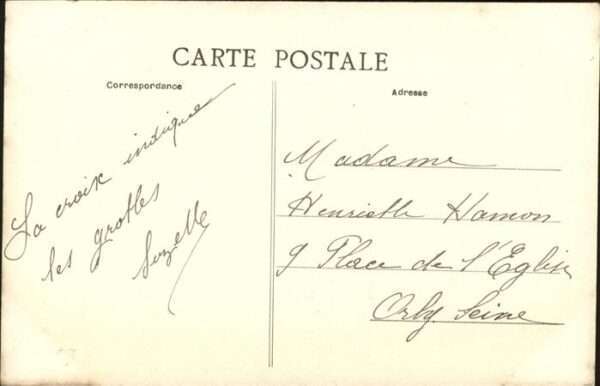 CARTE POSTALE
Correspondance
Adresse
La croix indique
les grottes
Suzette
Madame
Henriette Hamon
9 Place de l'Eglise
Orly Seine